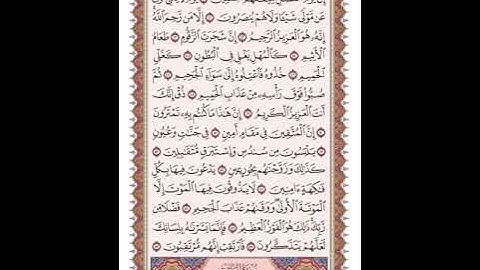 عَن مَّوْلًى شَيْـًٔا وَلَا هُمْ يُنصَرُونَ ۝ إِلَّا مَن رَّحِمَ ٱللَّهُ
إِنَّهُۥ هُوَ ٱلْعَزِيزُ ٱلرَّحِيمُ ۝ إِنَّ شَجَرَتَ ٱلزَّقُّومِ ۝ طَعَامُ
ٱلْأَثِيمِ ۝ كَٱلْمُهْلِ يَغْلِى فِى ٱلْبُطُونِ ۝ كَغَلْىِ
ٱلْحَمِيمِ ۝ خُذُوهُ فَٱعْتِلُوهُ إِلَىٰ سَوَآءِ ٱلْجَحِيمِ ۝ ثُمَّ
صُبُّوا۟ فَوْقَ رَأْسِهِۦ مِنْ عَذَابِ ٱلْحَمِيمِ ۝ ذُقْ إِنَّكَ
أَنتَ ٱلْعَزِيزُ ٱلْكَرِيمُ ۝ إِنَّ هَٰذَا مَا كُنتُم بِهِۦ تَمْتَرُونَ
۝ إِنَّ ٱلْمُتَّقِينَ فِى مَقَامٍ أَمِينٍ ۝ فِى جَنَّٰتٍ وَعُيُونٍ
۝ يَلْبَسُونَ مِن سُندُسٍ وَإِسْتَبْرَقٍ مُّتَقَٰبِلِينَ ۝
كَذَٰلِكَ وَزَوَّجْنَٰهُم بِحُورٍ عِينٍ ۝ يَدْعُونَ فِيهَا بِكُلِّ
فَٰكِهَةٍ ءَامِنِينَ ۝ لَا يَذُوقُونَ فِيهَا ٱلْمَوْتَ إِلَّا
ٱلْمَوْتَةَ ٱلْأُولَىٰ ۖ وَوَقَىٰهُمْ عَذَابَ ٱلْجَحِيمِ ۝ فَضْلًا مِّن
رَّبِّكَ ۚ ذَٰلِكَ هُوَ ٱلْفَوْزُ ٱلْعَظِيمُ ۝ فَإِنَّمَا يَسَّرْنَٰهُ بِلِسَانِكَ
لَعَلَّهُمْ يَتَذَكَّرُونَ ۝ فَٱرْتَقِبْ إِنَّهُم مُّرْتَقِبُونَ ۝